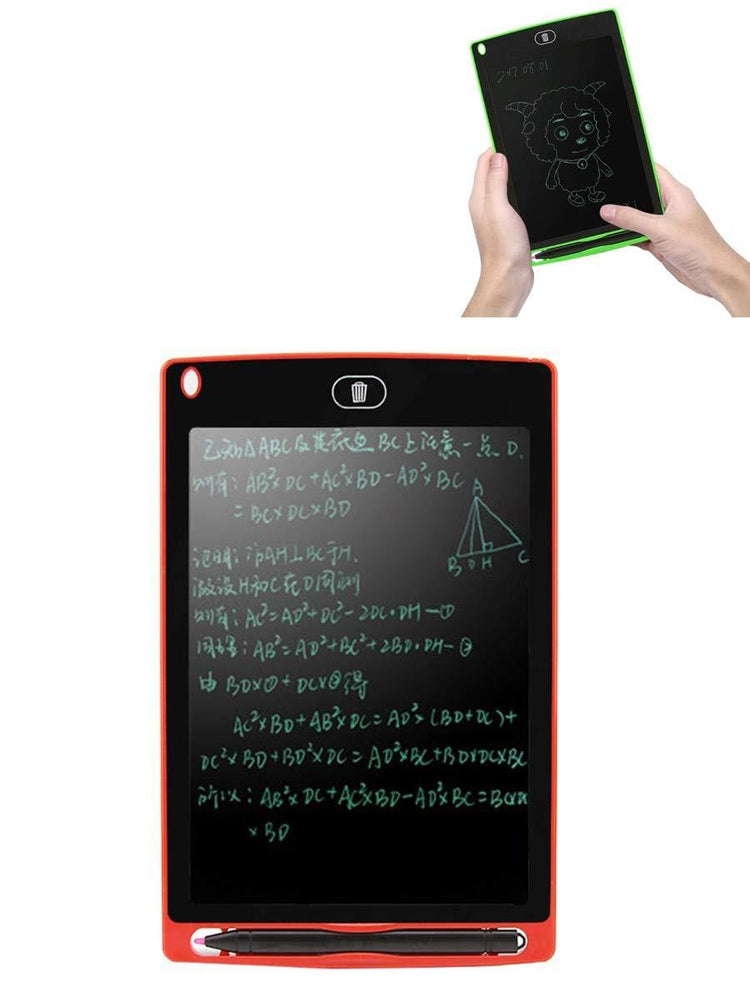 2017.08.01
已知△ABC及其底边BC上任意一点D.
则有：AB²×DC+AC²×BD-AD²×BC
=BC×DC×BD
A
B D H C
证明：作AH⊥BC于H.
假设H和C在D同侧
则有：AC²=AD²+DC²-2DC·DH—①
同理：AB²=AD²+BC²+2BD·DH—②
由BD×①+DC×②得
AC²×BD+AB²×DC=AD²×(BD+DC)+
DC²×BD+BD²×DC=AD²×BC+BD×DC×BC
所以：AB²×DC+AC²×BD-AD²×BC=BC×DC
×BD